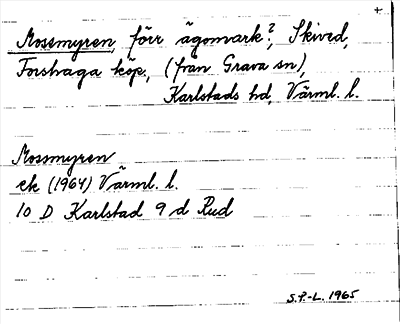 +
Mossmyren, förr ägomark?, Skived,
Forshaga köp., (från Grava sn),
Karlstads hd, Värml. l.
Mossmyren
ek (1964) Värml. l.
10 D Karlstad 9 d Rud
S.P.-L. 1965